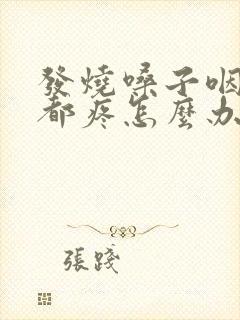 發燒嗓子咽
都疼怎麼办
張踐